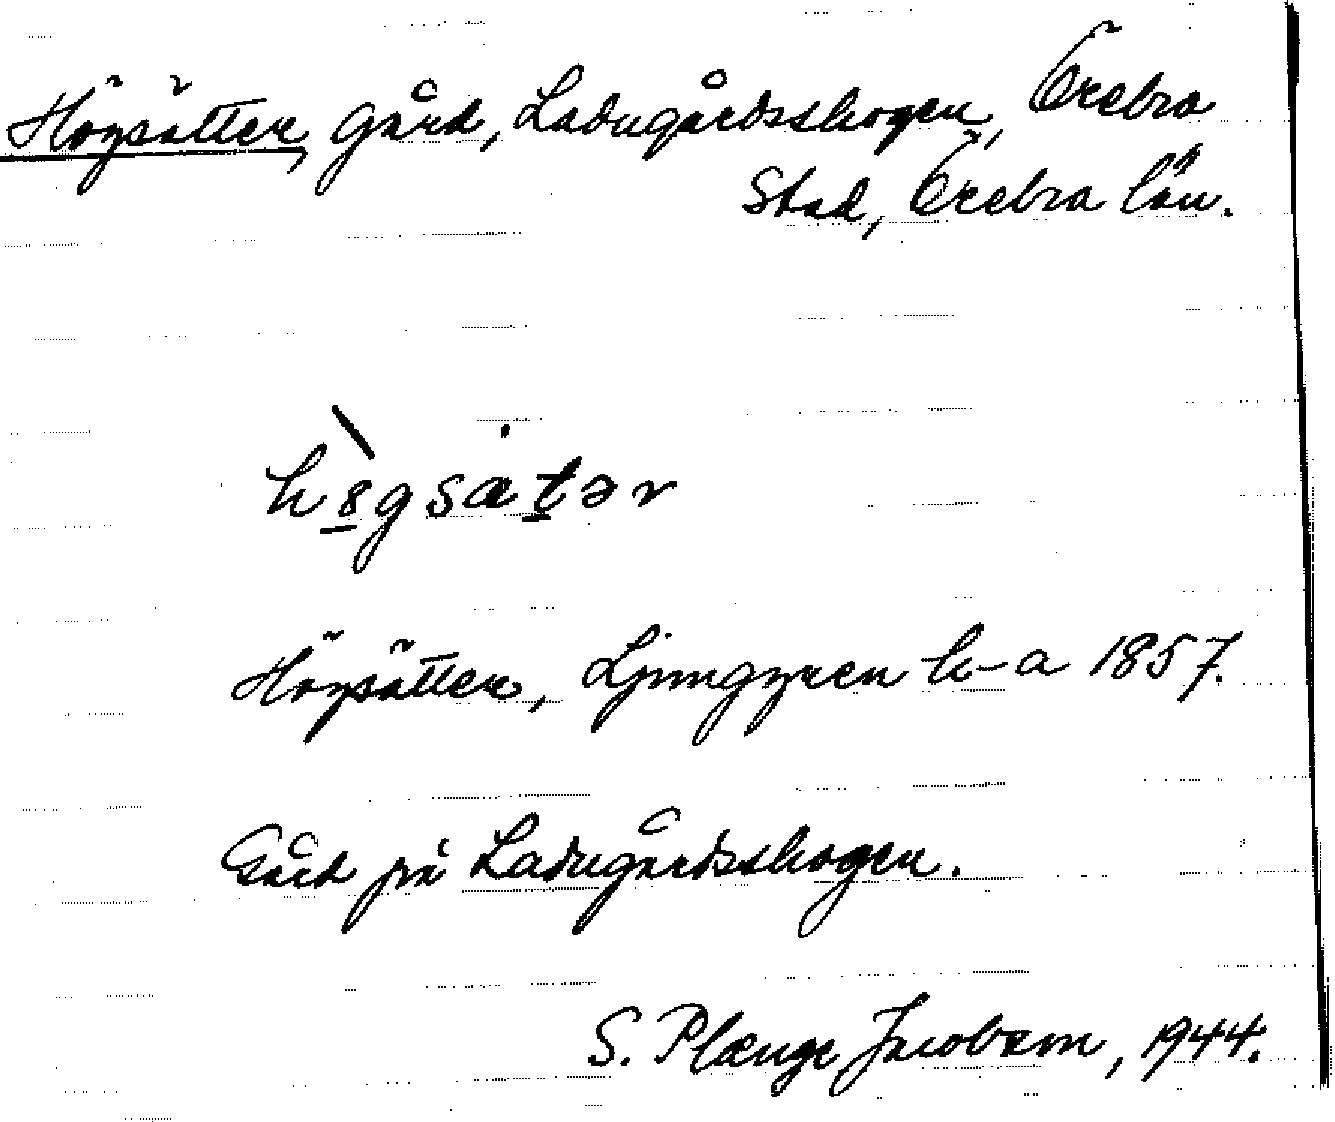 Högsätter, Gård, Ladugårdsskogen, Örebro
Stad, Örebro län.
Högsätter, Ljunggren k-a 1857.
Gård på Ladugårdsskogen.
S. Plænge Jacobson, 1944.